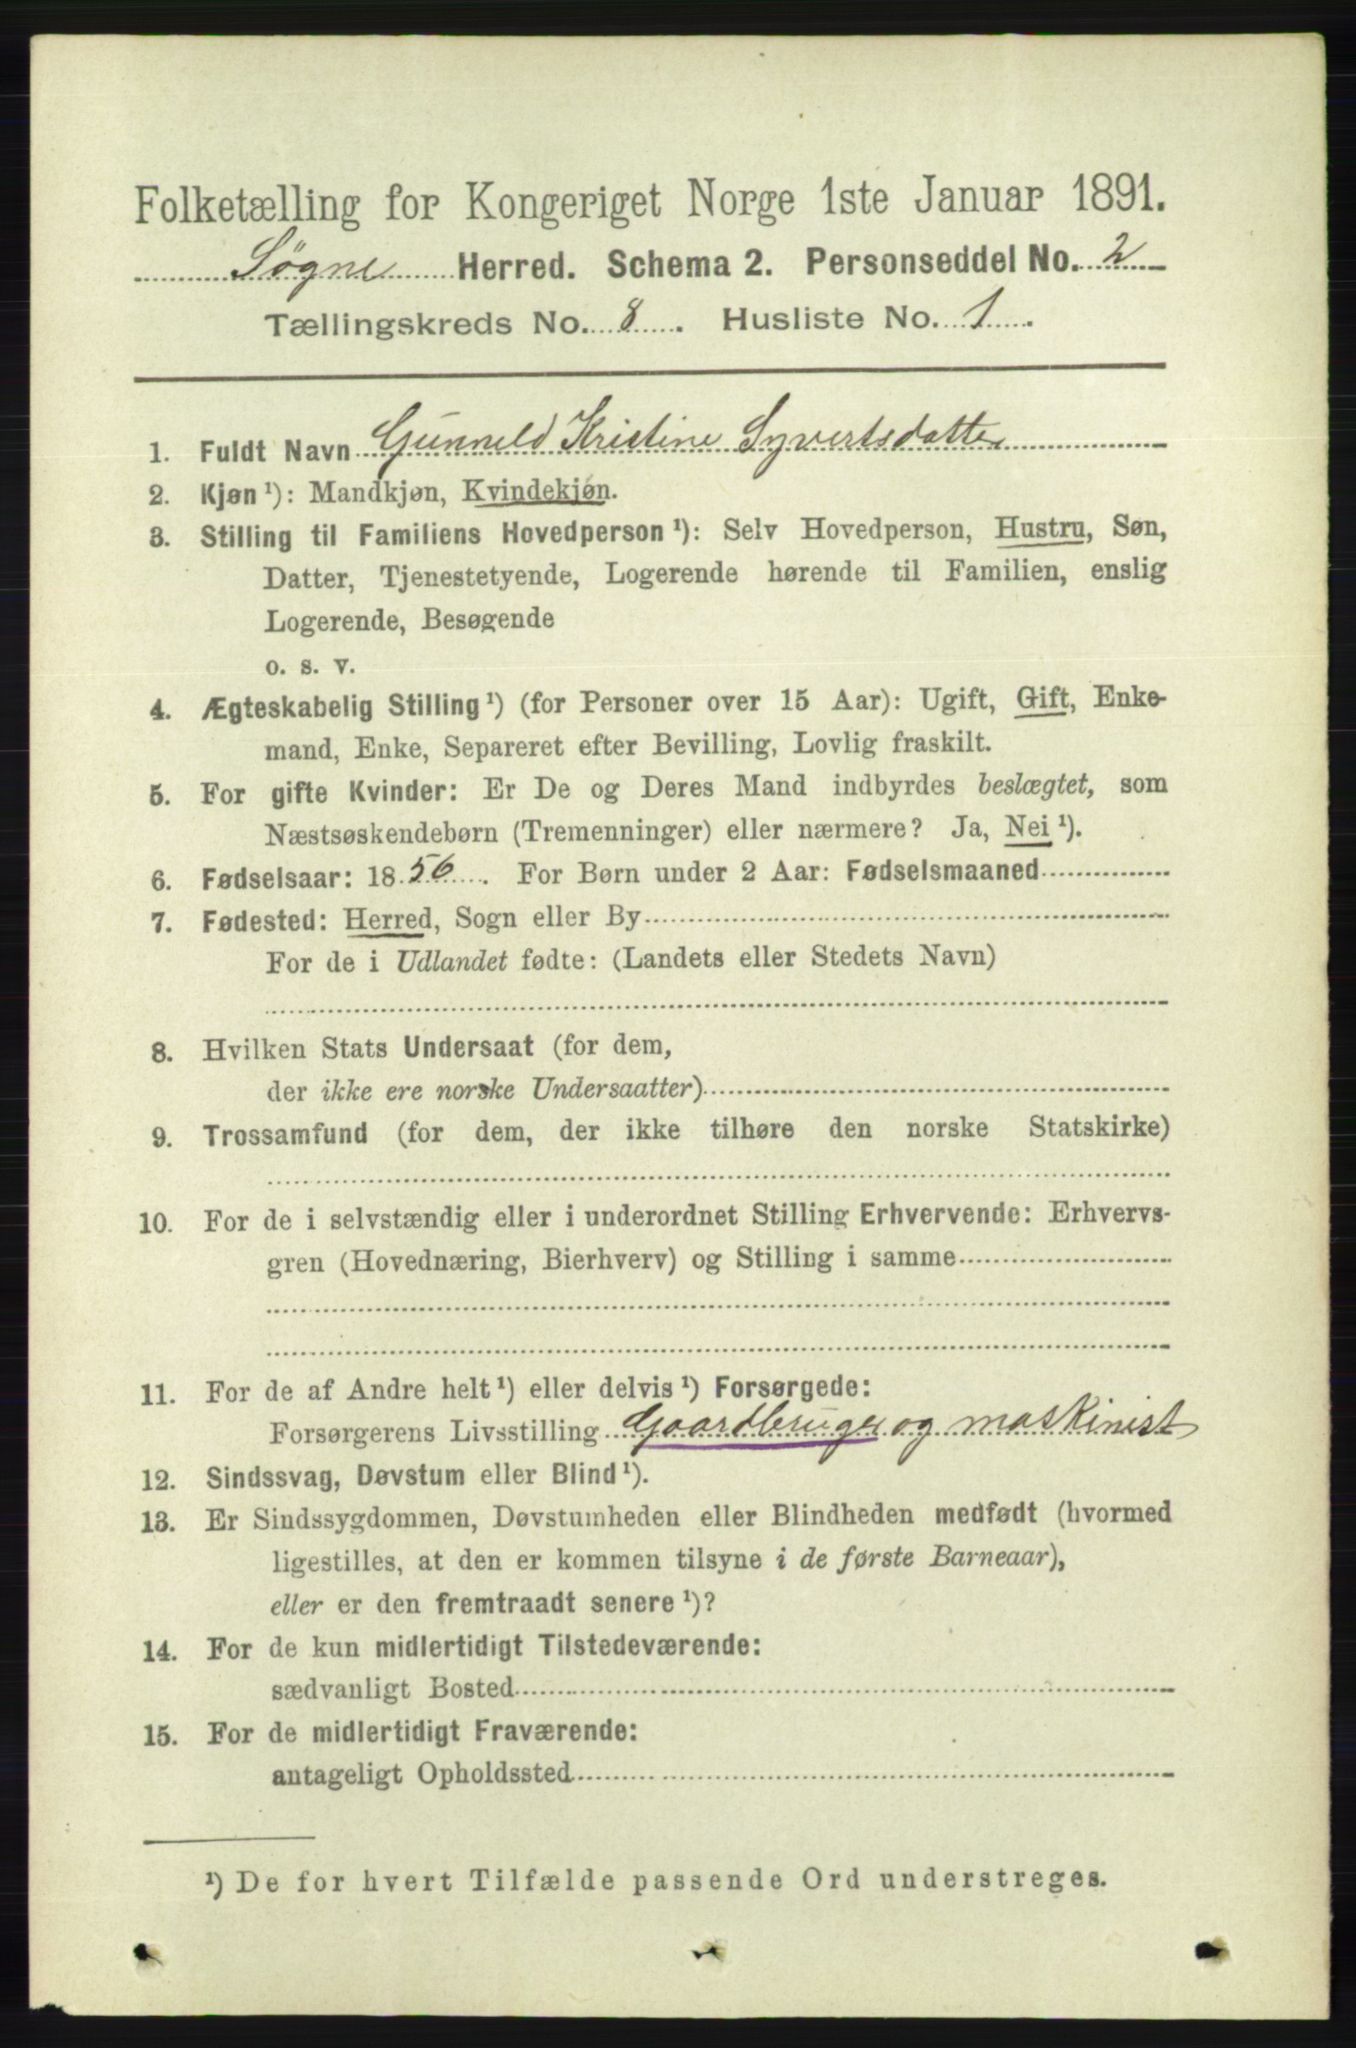 Folketælling for Kongeriget Norge 1ste Januar 1891.
Søgne Herred. Schema 2. Personseddel No. 2
Tællingskreds No. 8. Husliste No. 1.
1. Fuldt Navn Gunneld Kristine Syvertsdatter
2. Kjøn ¹): Mandkjøn, Kvindekjøn.
3. Stilling til Familiens Hovedperson ¹): Selv Hovedperson, Hustru, Søn,
Datter, Tjenestetyende, Logerende hørende til Familien, enslig
Logerende, Besøgende
o. s. v.
4. Ægteskabelig Stilling ¹) (for Personer over 15 Aar): Ugift, Gift, Enke-
mand, Enke, Separeret efter Bevilling, Lovlig fraskilt.
5. For gifte Kvinder: Er De og Deres Mand indbyrdes beslægtet, som
Næstsøskendebørn (Tremenninger) eller nærmere? Ja, Nei ¹).
6. Fødselsaar: 1856. For Børn under 2 Aar: Fødselsmaaned
7. Fødested: Herred, Sogn eller By
For de i Udlandet fødte: (Landets eller Stedets Navn)
8. Hvilken Stats Undersaat (for dem,
der ikke ere norske Undersaatter)
9. Trossamfund (for dem, der ikke tilhøre den norske Statskirke)
10. For de i selvstændig eller i underordnet Stilling Erhvervende: Erhvervs-
gren (Hovednæring, Bierhverv) og Stilling i samme
11. For de af Andre helt ¹) eller delvis ¹) Forsørgede:
Forsørgerens Livsstilling Gaardbruger og maskinist
12. Sindssvag, Døvstum eller Blind ¹).
13. Er Sindssygdommen, Døvstumheden eller Blindheden medfødt (hvormed
ligestilles, at den er kommen tilsyne i de første Barneaar),
eller er den fremtraadt senere ¹)?
14. For de kun midlertidigt Tilstedeværende:
sædvanligt Bosted
15. For de midlertidigt Fraværende:
antageligt Opholdssted
¹) De for hvert Tilfælde passende Ord understreges.